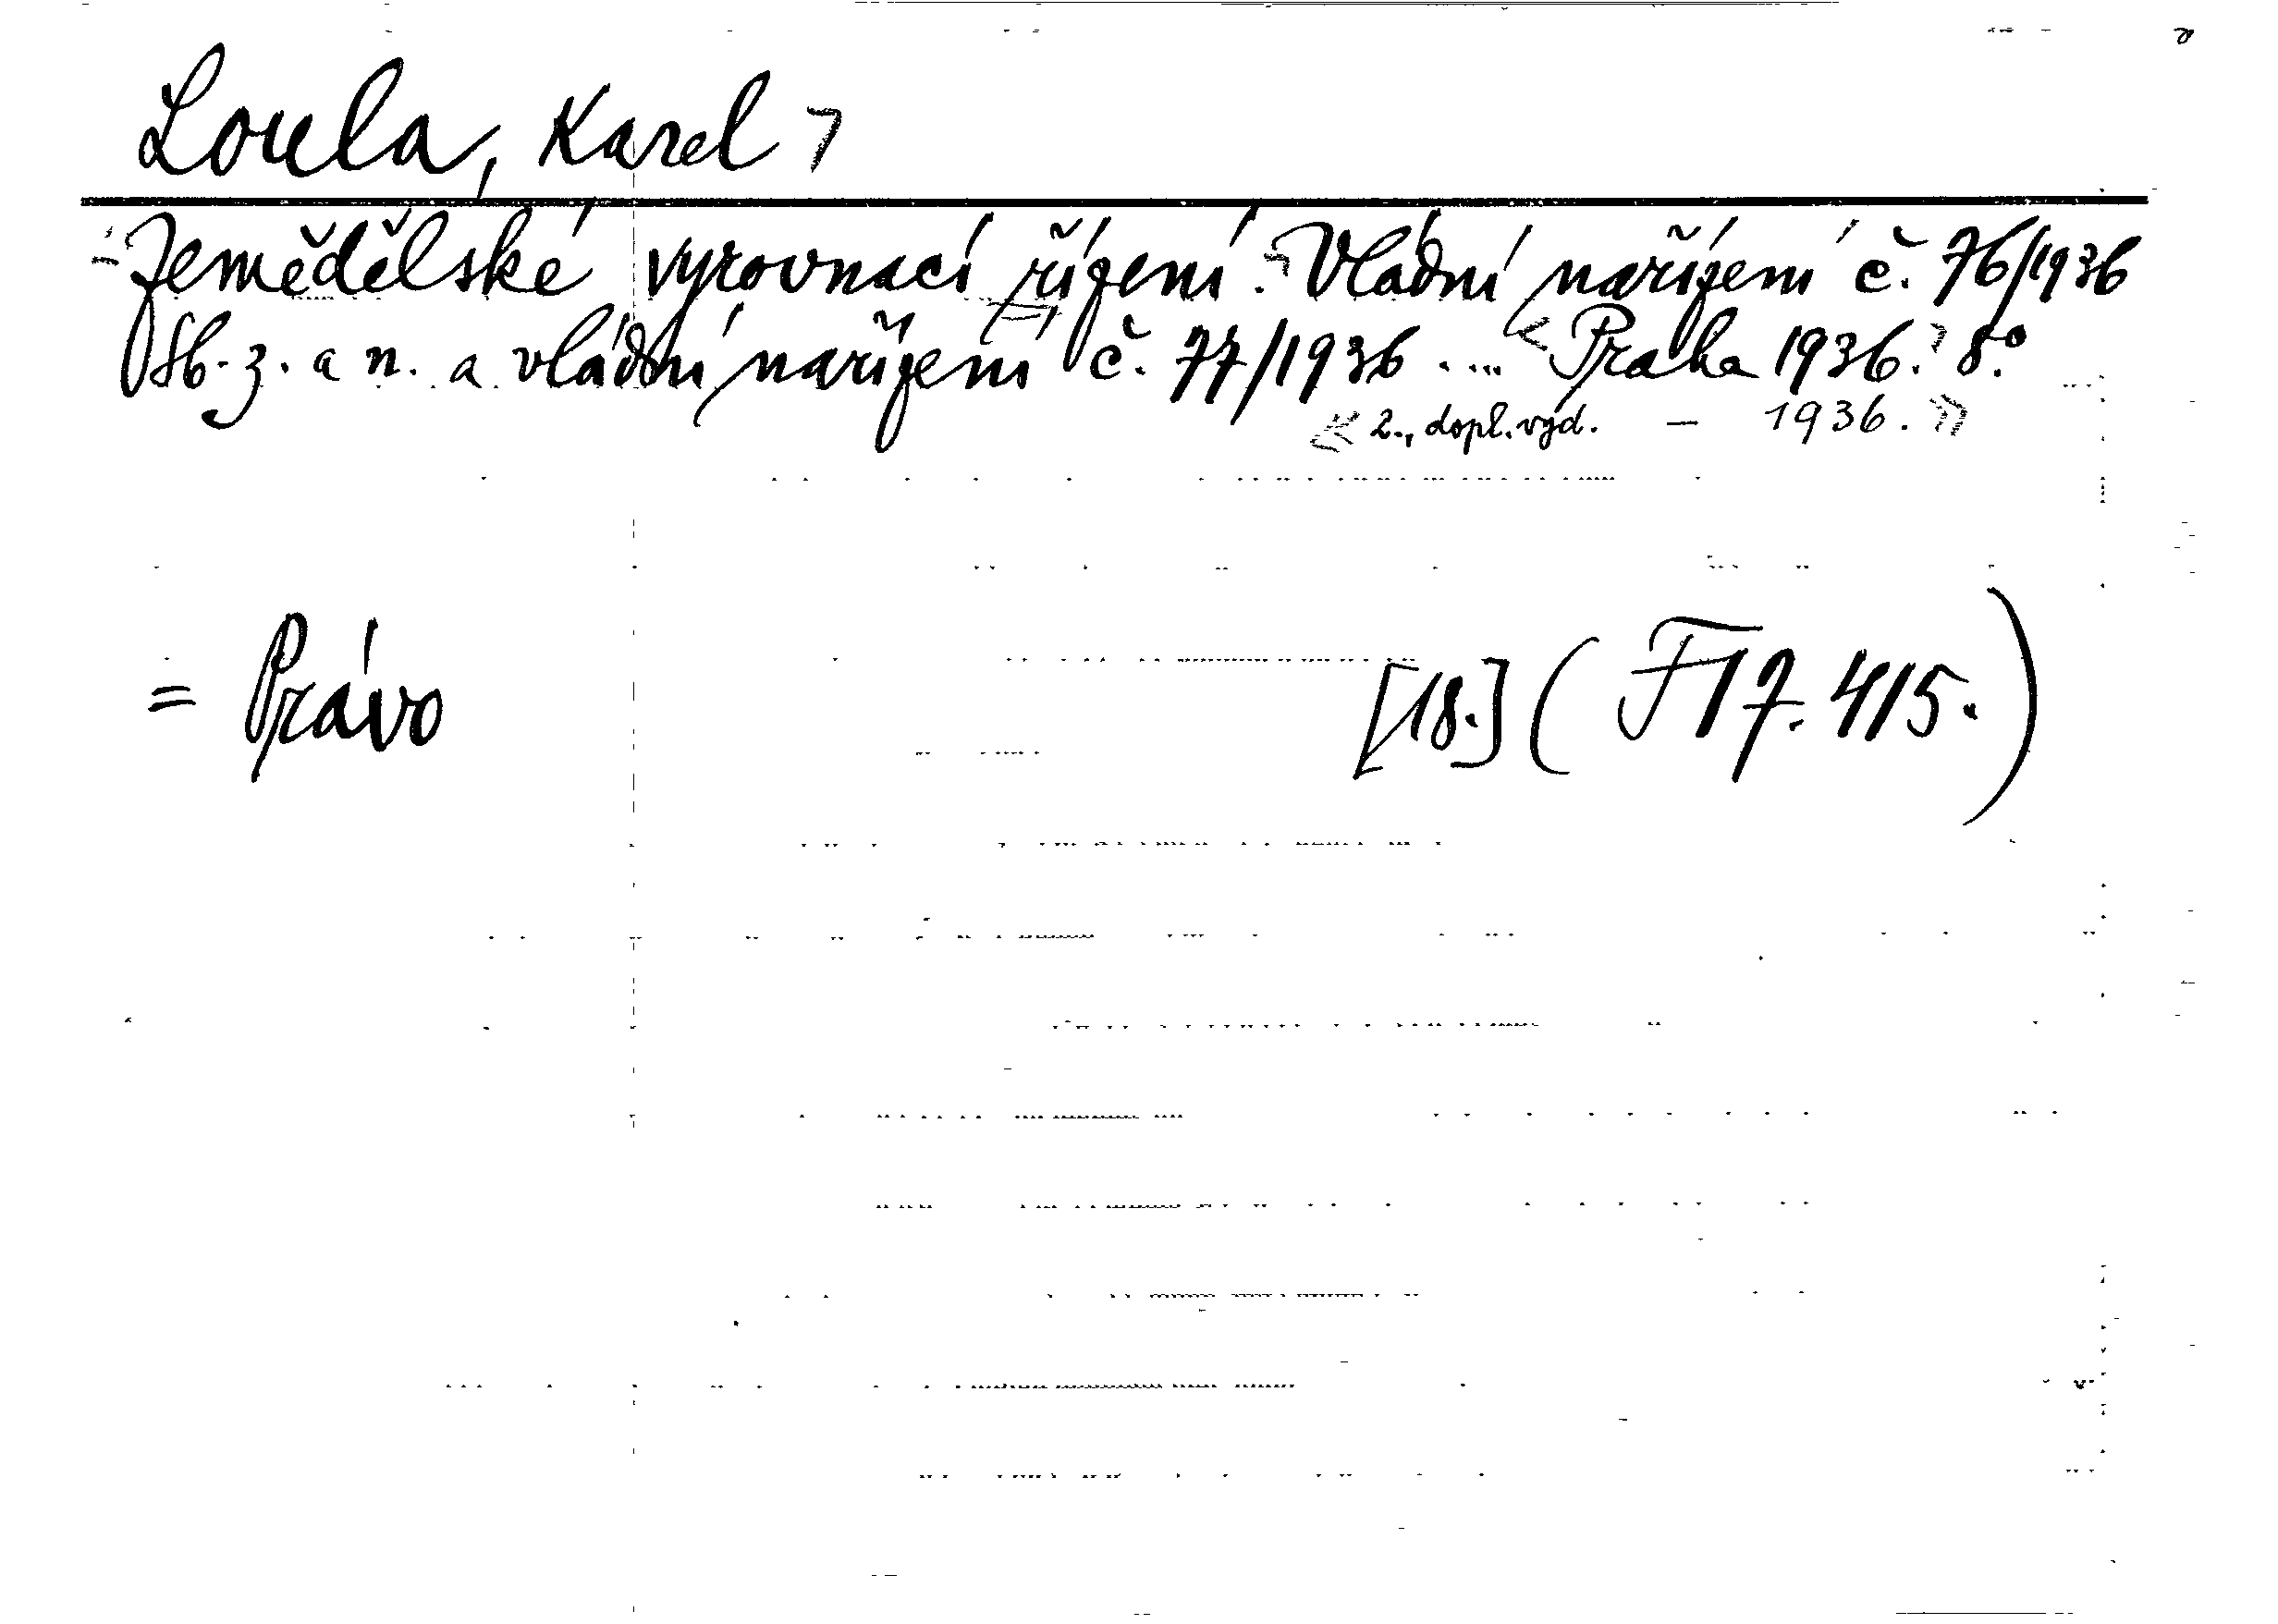 Loula, Karel
Zemědělské vyrovnací řízení. Vládní nařízení č. 76/1936
Sb. z. a n. a vládní nařízení č. 77/1936 .... Praha 1936. 8°.
2., dopl. vyd. — 1936.
= Právo [18.] (F 17.415.)